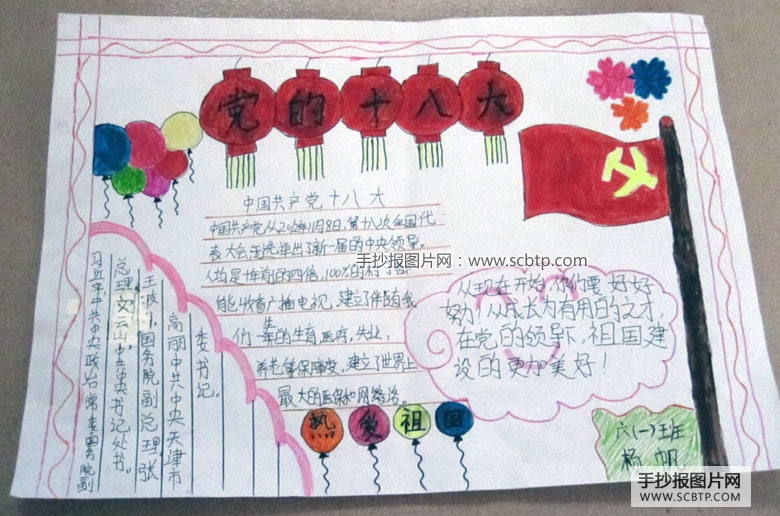 党的十八大
中国共产党十八大
中国共产党从2012年11月8日,第十八次全国代
表大会王选举出了新一届的中央领导。
人均是十年前的四倍,100%的村
能收看广播电视,建立伴随我
们一辈的生育,医府,失业,
养老等保障度,建立了世界上
最大的医保和网络治。
手抄报图片网:www.scbtp.com
从现在开始,你们要好好
努力!从成长为有用的文才,
在党的领导下,祖国建
设的更加美好!
习近平中共中央政治常委国务院副
总理刘云山,中共中央书记处书。
王波,国务院副总理张
高丽中共中央天津市
委书记。
热爱祖国
六(一)班
杨帆
手抄报图片网
WWW.SCBTP.COM